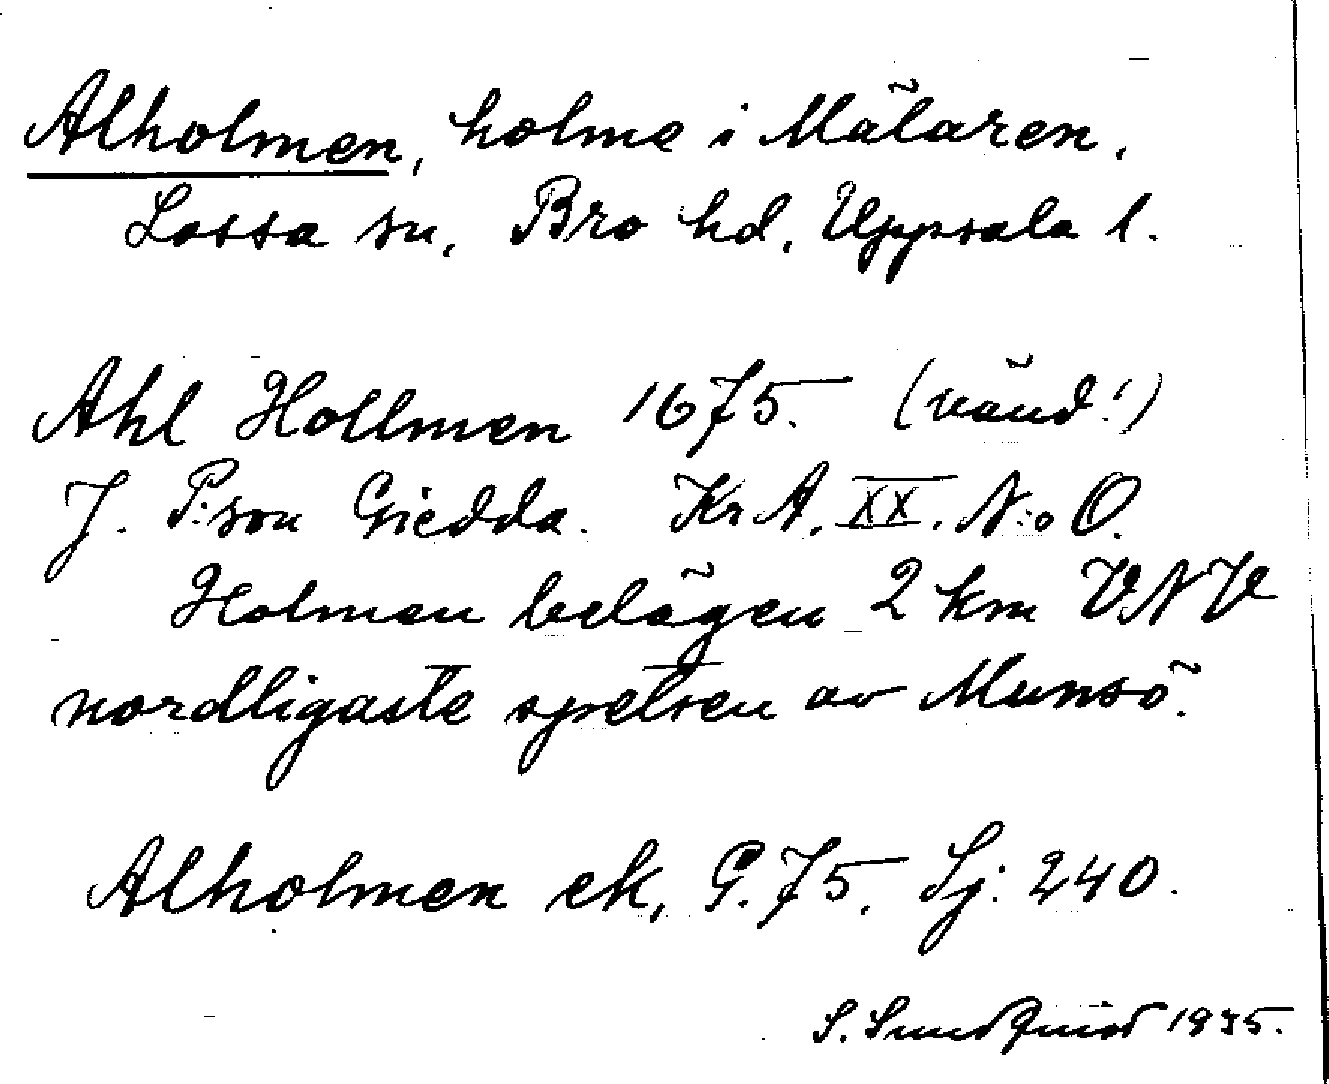 Alholmen, holme i Mälaren,
Lossa sn, Bro hd, Uppsala l.
Ahl Hollmen 1675. (vänd!)
J. P:son Giedda. Kr A. XX. N:o O.
Holmen belägen 2 km VNV
nordligaste spetsen av Munsö.
Alholmen ek, G. 75. Sj: 240.
S. Sundquist 1935.